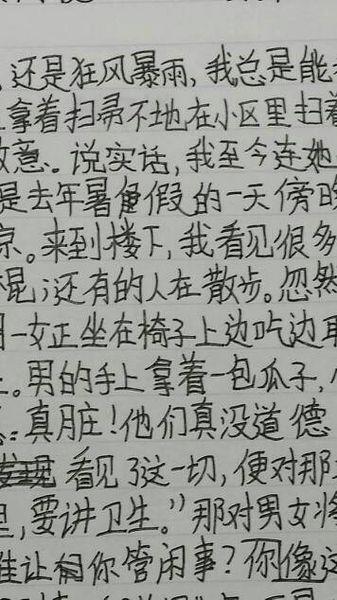 还是狂风暴雨,我总是能
拿着扫帚不地在小区里扫着
敬意。说实话,我至今连她
是去年暑假的一天傍晚
凉。来到楼下,我看见很多
棍;还有的人在散步。忽然
一女正坐在椅子上边吃边
。男的手上拿着一包瓜子,
真脏!他们真没道德
看见了这一切,便对那
里,要讲卫生。”那对男女
谁让你管闲事?你像这